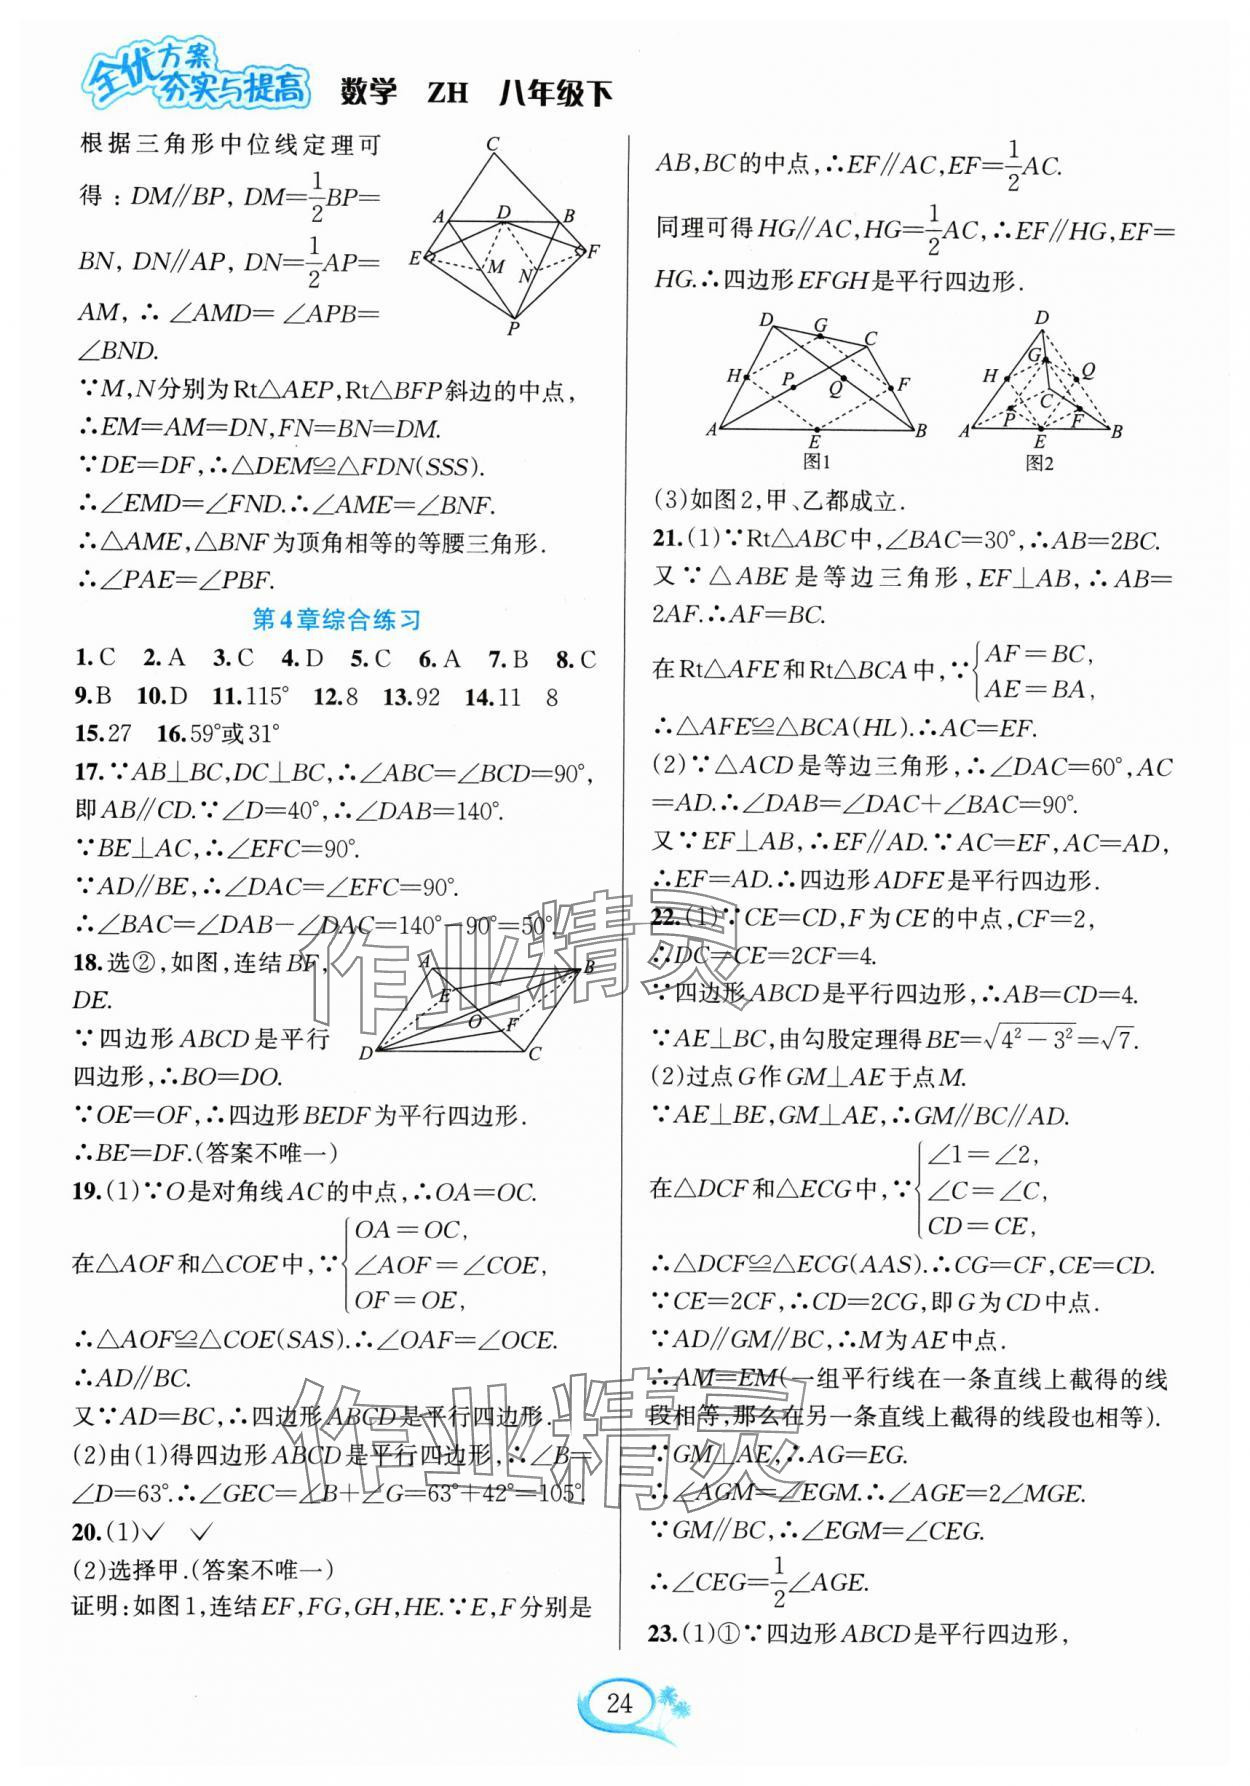 全优方案
夯实与提高
数学 ZH 八年级下
根据三角形中位线定理可
得:DM∥BP, DM=1/2BP=
BN, DN∥AP, DN=1/2AP=
AM, ∴ ∠AMD= ∠APB=
∠BND.
∵M,N分别为Rt△AEP,Rt△BFP斜边的中点,
∴EM=AM=DN,FN=BN=DM.
∵DE=DF,∴△DEM≌△FDN(SSS).
∴∠EMD=∠FND.∴∠AME=∠BNF.
∴△AME,△BNF为顶角相等的等腰三角形.
∴∠PAE=∠PBF.
C
A D B
E M N F
P
第4章综合练习
1.C 2.A 3.C 4.D 5.C 6.A 7.B 8.C
9.B 10.D 11.115° 12.8 13.92 14.11 8
15.27 16.59°或31°
17.∵AB⊥BC,DC⊥BC,∴∠ABC=∠BCD=90°,
即AB∥CD.∵∠D=40°,∴∠DAB=140°.
∵BE⊥AC,∴∠EFC=90°.
∵AD∥BE,∴∠DAC=∠EFC=90°.
∴∠BAC=∠DAB-∠DAC=140°-90°=50°.
18.选②,如图,连结BF,
DE.
∵四边形ABCD是平行
四边形,∴BO=DO.
∵OE=OF,∴四边形BEDF为平行四边形.
∴BE=DF.(答案不唯一)
A B
E
O F
D C
19.(1)∵O是对角线AC的中点,∴OA=OC.
在△AOF和△COE中,∵{OA=OC,
∠AOF=∠COE,
OF=OE,
∴△AOF≌△COE(SAS).∴∠OAF=∠OCE.
∴AD∥BC.
又∵AD=BC,∴四边形ABCD是平行四边形.
(2)由(1)得四边形ABCD是平行四边形,∴∠B=
∠D=63°.∴∠GEC=∠B+∠G=63°+42°=105°.
20.(1)✓ ✓
(2)选择甲.(答案不唯一)
证明:如图1,连结EF,FG,GH,HE.∵E,F分别是
AB,BC的中点,∴EF∥AC,EF=1/2AC.
同理可得HG∥AC,HG=1/2AC,∴EF∥HG,EF=
HG.∴四边形EFGH是平行四边形.
D G C
H P Q F
A E B
图1
D
G
H Q
C
P F
A E B
图2
(3)如图2,甲、乙都成立.
21.(1)∵Rt△ABC中,∠BAC=30°,∴AB=2BC.
又∵△ABE是等边三角形,EF⊥AB,∴AB=
2AF.∴AF=BC.
在Rt△AFE和Rt△BCA中,∵{AF=BC,
AE=BA,
∴△AFE≌△BCA(HL).∴AC=EF.
(2)∵△ACD是等边三角形,∴∠DAC=60°,AC
=AD.∴∠DAB=∠DAC+∠BAC=90°.
又∵EF⊥AB,∴EF∥AD.∵AC=EF,AC=AD,
∴EF=AD.∴四边形ADFE是平行四边形.
22.(1)∵CE=CD,F为CE的中点,CF=2,
∴DC=CE=2CF=4.
∵四边形ABCD是平行四边形,∴AB=CD=4.
∵AE⊥BC,由勾股定理得BE=√(4²-3²)=√7.
(2)过点G作GM⊥AE于点M.
∵AE⊥BE,GM⊥AE,∴GM∥BC∥AD.
在△DCF和△ECG中,∵{∠1=∠2,
∠C=∠C,
CD=CE,
∴△DCF≌△ECG(AAS).∴CG=CF,CE=CD.
∵CE=2CF,∴CD=2CG,即G为CD中点.
∵AD∥GM∥BC,∴M为AE中点.
∴AM=EM(一组平行线在一条直线上截得的线
段相等,那么在另一条直线上截得的线段也相等).
∵GM⊥AE,∴AG=EG.
∴∠AGM=∠EGM.∴∠AGE=2∠MGE.
∵GM∥BC,∴∠EGM=∠CEG.
∴∠CEG=1/2∠AGE.
23.(1)①∵四边形ABCD是平行四边形,
作业精灵
作业精灵
24